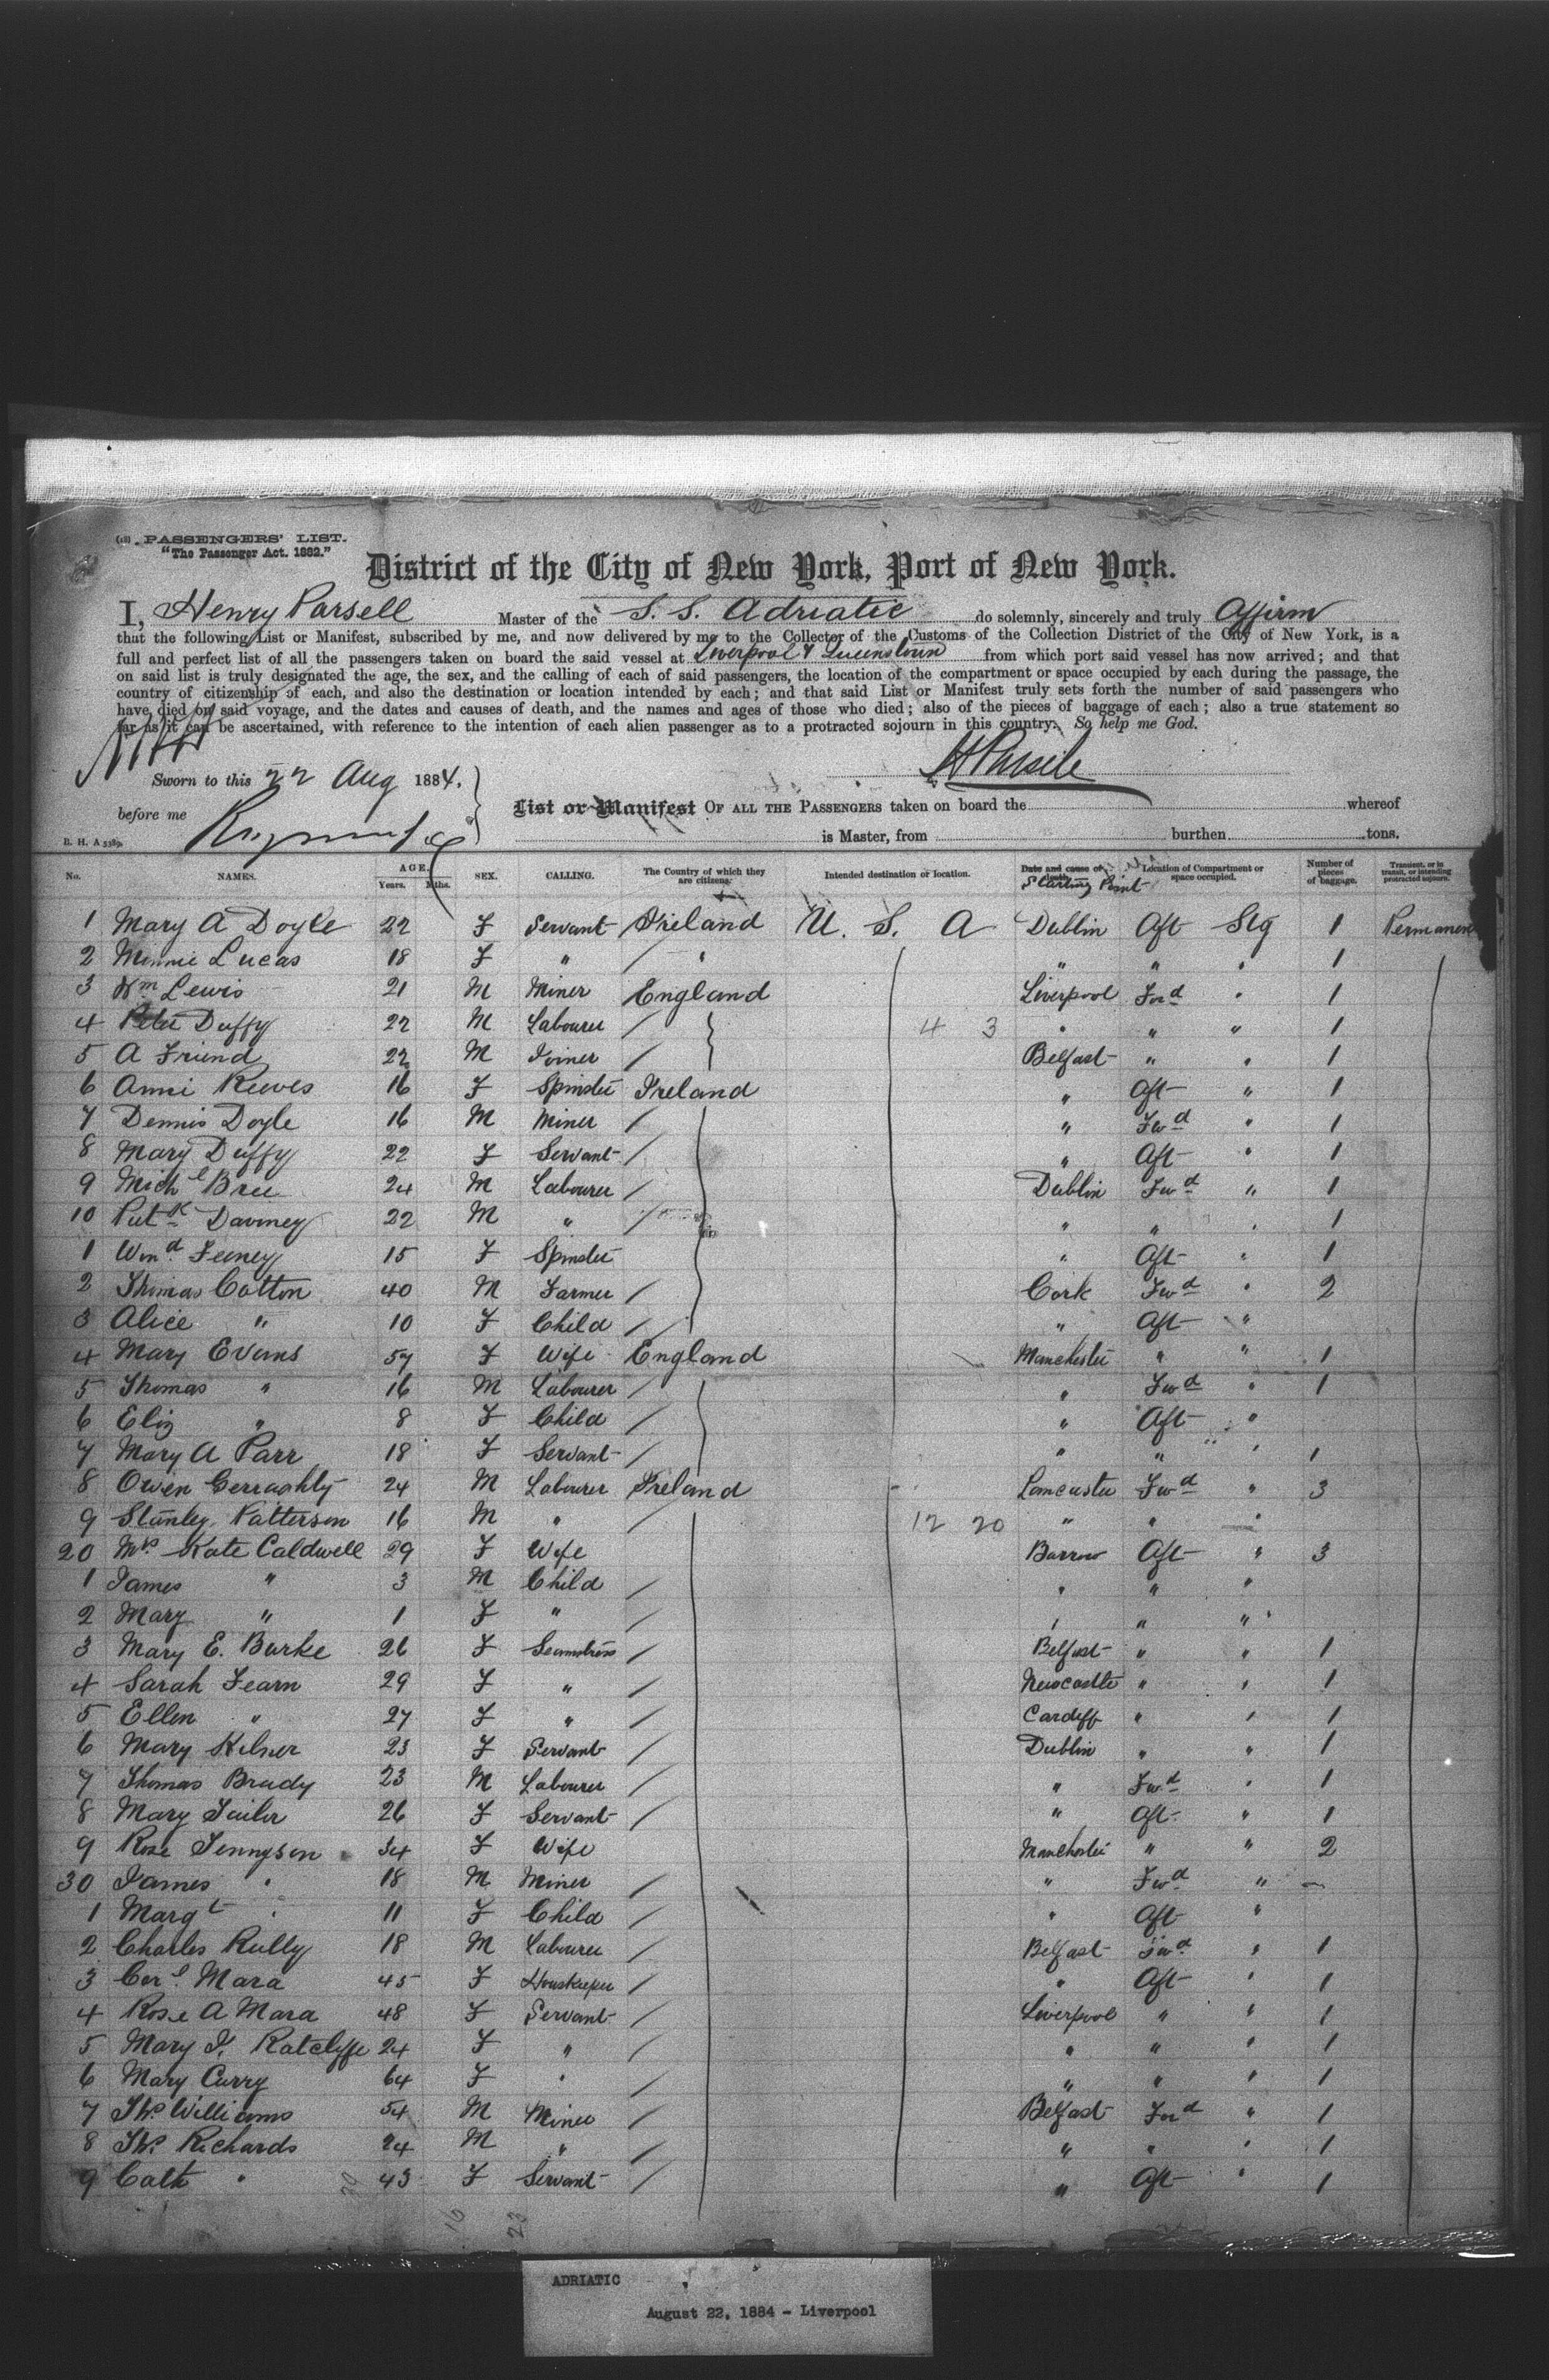 (18) PASSENGERS' LIST.
"The Passenger Act. 1882."
District of the City of New York, Port of New York.
I, Henry Parsell Master of the S. S. Adriatic do solemnly, sincerely and truly Affirm
that the following List or Manifest, subscribed by me, and now delivered by me to the Collector of the Customs of the Collection District of the City of New York, is a
full and perfect list of all the passengers taken on board the said vessel at Liverpool & Queenstown from which port said vessel has now arrived; and that
on said list is truly designated the age, the sex, and the calling of each of said passengers, the location of the compartment or space occupied by each during the passage, the
country of citizenship of each, and also the destination or location intended by each; and that said List or Manifest truly sets forth the number of said passengers who
have died on said voyage, and the dates and causes of death, and the names and ages of those who died; also of the pieces of baggage of each; also a true statement so
far as it can be ascertained, with reference to the intention of each alien passenger as to a protracted sojourn in this country. So help me God.
Sworn to this 22 Aug 1884.
before me
List or Manifest OF ALL THE PASSENGERS taken on board the whereof
B. H. A 5389. is Master, from burthen tons.
No. NAMES. AGE. Years. Mths. SEX. CALLING. The Country of which they are citizens. Intended destination or location. Date and cause of death. Starting Point Location of Compartment or space occupied. Number of pieces of baggage. Transient, or in transit, or intending protracted sojourn.
1 Mary A Doyle 22 F Servant Ireland U. S. A Dublin Aft Stg 1 Permanent
2 Minnie Lucas 18 F " / " " " " 1
3 Wm Lewis 21 M Miner England Liverpool Fwd " 1
4 Peter Duffy 22 M Labourer / 4 3 " " " 1
5 A Friend 22 M Joiner / Belfast " " 1
6 Anni Reeves 16 F Spinster Ireland " Aft " 1
7 Dennis Doyle 16 M Miner / " Fwd " 1
8 Mary Duffy 22 F Servant / " Aft " 1
9 Michl Bree 24 M Labourer / Dublin Fwd " 1
10 Patk Davmey 22 M " / " " " 1
1 Wind Feeney 15 F Spinster " Aft " 1
2 Thomas Cotton 40 M Farmer / Cork Fwd " 2
3 Alice " 10 F Child / " Aft "
4 Mary Evans 57 F Wife England Manchester " " 1
5 Thomas " 16 M Labourer / " Fwd " 1
6 Eliz " 8 F Child / " Aft "
7 Mary A Parr 18 F Servant / " " " 1
8 Owen Gerraghty 24 M Labourer Ireland Lancaster Fwd " 3
9 Stanley Patterson 16 M " / 12 20 " " "
20 Mrs Kate Caldwell 29 F Wife Barrow Aft " 3
1 James " 3 M Child / " " "
2 Mary " 1 F " / " " "
3 Mary E. Burke 26 F Seamstress / Belfast " " 1
4 Sarah Fearn 29 F " / Newcastle " " 1
5 Ellen " 27 F " / Cardiff " " 1
6 Mary Kilner 23 F Servant / Dublin " " 1
7 Thomas Brady 23 M Labourer / " Fwd " 1
8 Mary Tailor 26 F Servant / " Aft " 1
9 Rose Tennyson 34 F Wife Manchester " " 2
30 James " 18 M Miner / " Fwd " —
1 Margt " 11 F Child / " Aft "
2 Charles Rully 18 M Labourer / Belfast Fwd " 1
3 Mara 45 F Housekeeper / " Aft " 1
4 Rose A Mara 48 F Servant / Liverpool " " 1
5 Mary J. Ratclyffe 24 F " / " " " 1
6 Mary Curry 64 F " / " " " 1
7 Ths Williams 54 M Miner / Belfast Fwd " 1
8 Ths Richards 24 M " / " " " 1
9 Cath " 43 F Servant / " Aft " 1
20 16 23
ADRIATIC
August 22, 1884 - Liverpool